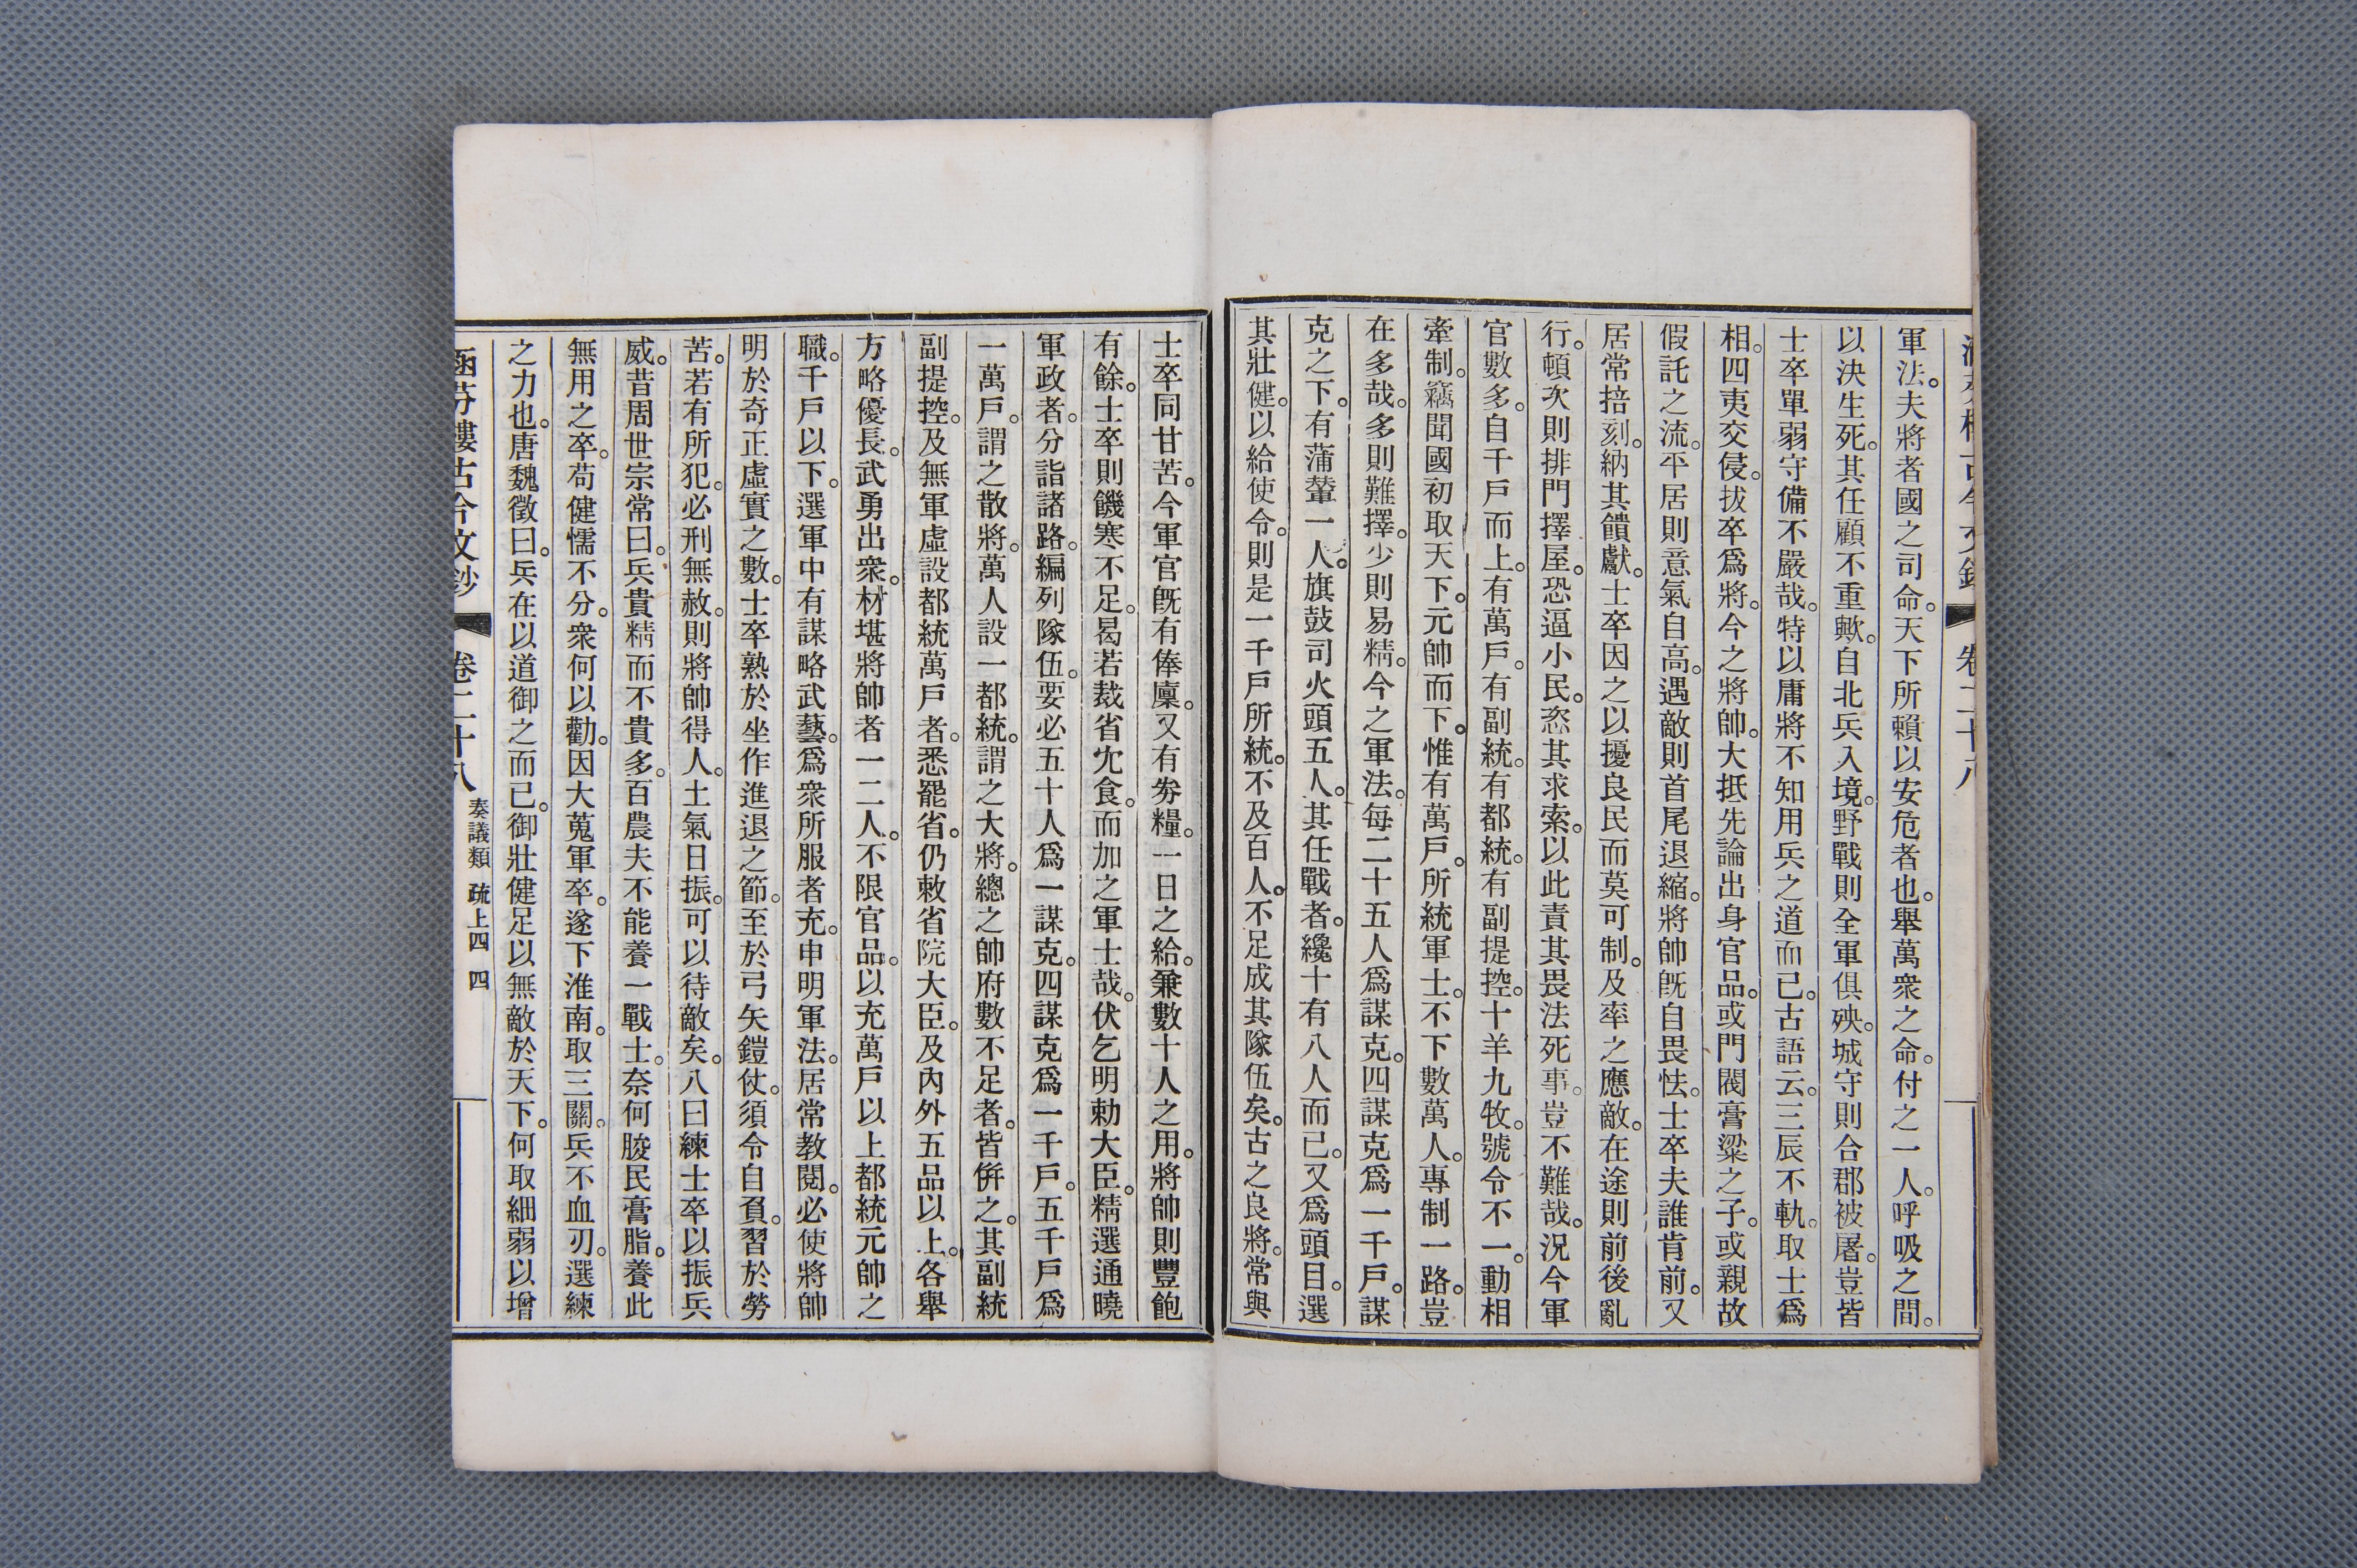 軍法。夫將者國之司命。天下所賴以安危者也。舉萬衆之命。付之一人。呼吸之間。
以決生死。其任顧不重歟。自北兵入境。野戰則全軍俱殃。城守則合郡被屠。豈皆
士卒單弱守備不嚴哉。特以庸將不知用兵之道而已。古語云。三辰不軌。取士爲
相。四夷交侵。拔卒爲將。今之將帥。大抵先論出身官品。或門閥膏粱之子。或親故
假託之流。平居則意氣自高。遇敵則首尾退縮。將帥既自畏怯。士卒夫誰肯前。又
居常掊刻。納其饋獻。士卒因之以擾良民而莫可制。及率之應敵。在途則前後亂
行。頓次則排門擇屋。恐逼小民。恣其求索。以此責其畏法死事。豈不難哉。況今軍
官數多。自千戶而上。有萬戶。有副統。有都統。有副提控。十羊九牧。號令不一。動相
牽制。竊聞國初取天下。元帥而下。惟有萬戶。所統軍士。不下數萬人。專制一路。豈
在多哉。多則難擇。少則易精。今之軍法。每二十五人爲謀克。四謀克爲一千戶。謀
克之下。有蒲輦一人。旗鼓司火頭五人。其任戰者。纔十有八人而已。又爲頭目。選
其壯健。以給使令。則是一千戶所統。不及百人。不足成其隊伍矣。古之良將。常與
士卒同甘苦。今軍官既有俸廩。又有券糧。一日之給。兼數十人之用。將帥則豐飽
有餘。士卒則饑寒不足。曷若裁省冗食。而加之軍士哉。伏乞明勅大臣。精選通曉
軍政者。分詣諸路。編列隊伍。要必五十人爲一謀克。四謀克爲一千戶。五千戶爲
一萬戶。謂之散將。萬人設一都統。謂之大將。總之帥府。數不足者。皆倂之。其副統
副提控。及無軍虛設都統萬戶者。悉罷省。仍敕省院大臣。及內外五品以上。各舉
方略優長。武勇出衆。材堪將帥者一二人。不限官品。以充萬戶以上都統元帥之
職。千戶以下。選軍中有謀略武藝。爲衆所服者充。申明軍法。居常教閱。必使將帥
明於奇正虛實之數。士卒熟於坐作進退之節。至於弓矢鎧仗。須令自負。習於勞
苦。若有所犯。必刑無赦。則將帥得人。士氣日振。可以待敵矣。八曰練士卒以振兵
威。昔周世宗常曰。兵貴精而不貴多。百農夫不能養一戰士。奈何朘民膏脂。養此
無用之卒。苟健懦不分。衆何以勸。因大蒐軍卒。遂下淮南。取三關。兵不血刃。選練
之力也。唐魏徵曰。兵在以道御之而已。御壯健足以無敵於天下。何取細弱以增
涵芬樓古今文鈔 卷二十八 奏議類 疏上四 四